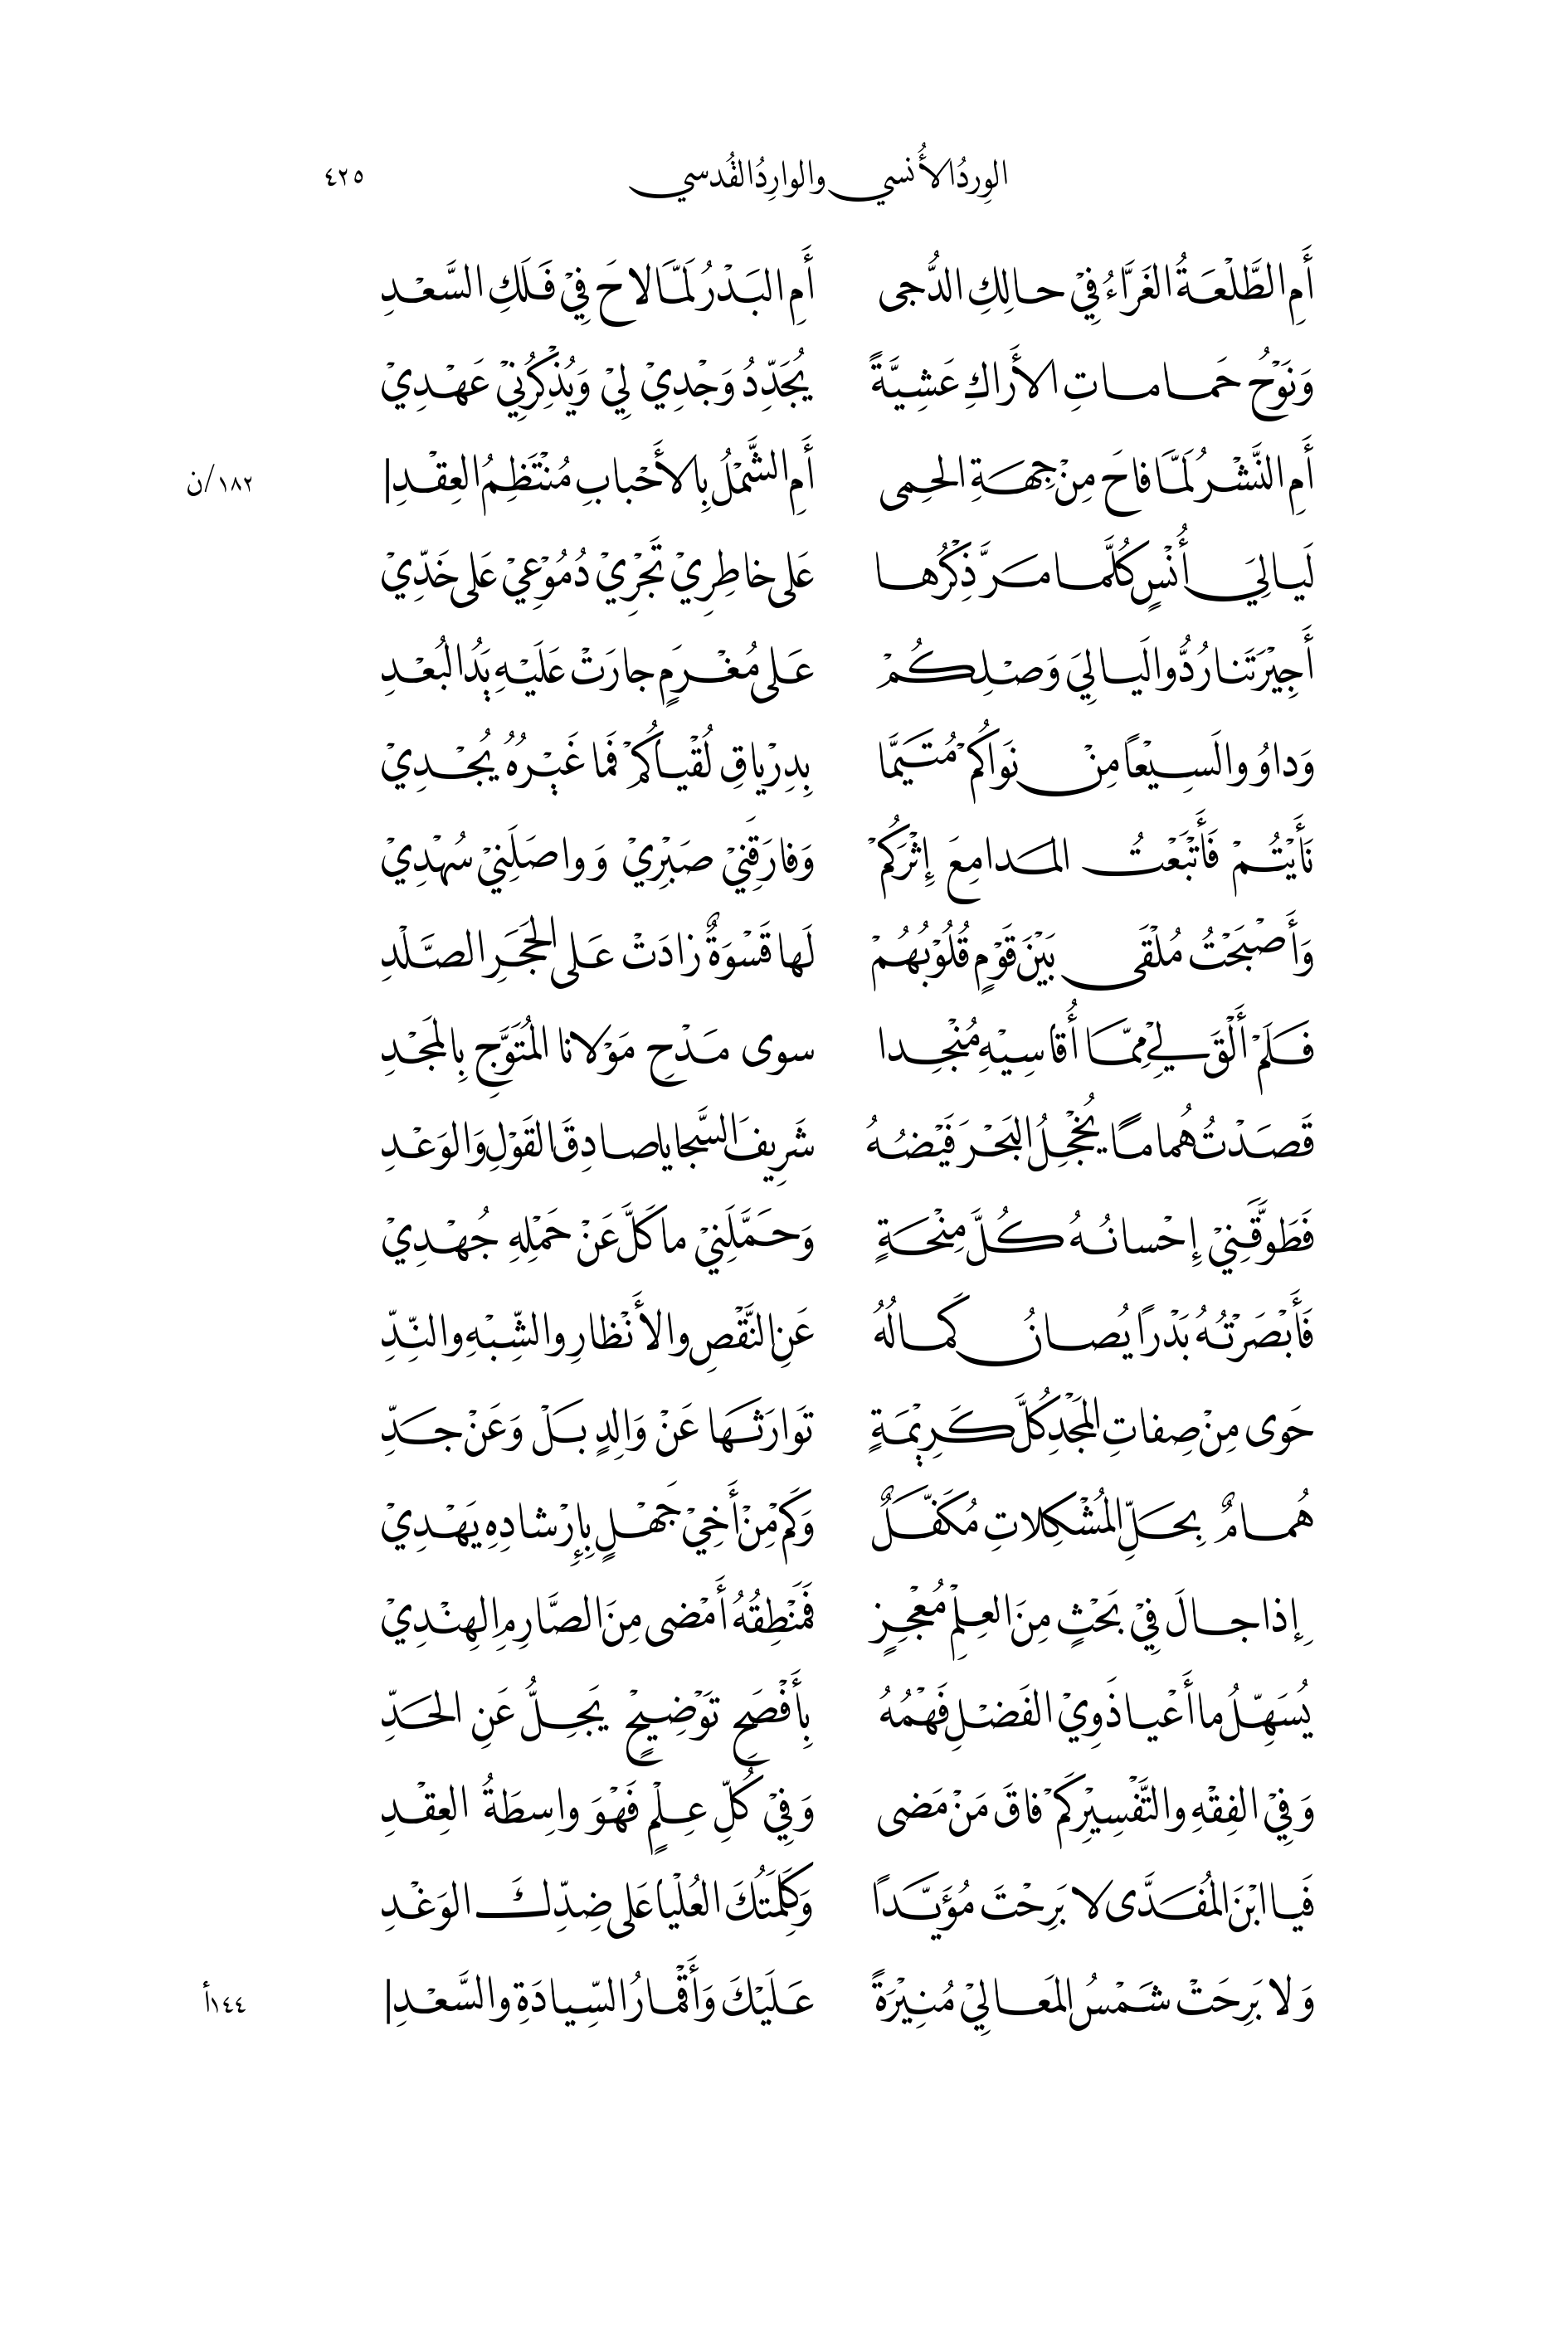 الوِردُ الأُنسي والوارِدُ القُدسي ٤٢٥
أَمِ الطَّلْعَةُ الغَرَّاءُ فِيْ حالِكِ الدُّجى أَمِ البَدْرُ لَمَّا لاحَ فِيْ فَلَكِ السَّعْدِ
وَنَوْحُ حَماماتِ الأَراكِ عَشِيَّةً يُجَدِّدُ وَجْدِيْ لِيْ وَيُذْكِرُنِيْ عَهْدِيْ
أَمِ النَّشْرُ لَمَّا فاحَ مِنْ جِهَةِ الحِمى أَمِ الشَّمْلُ بِالأَحْبابِ مُنْتَظِمُ العِقْدِ| ١٨٢/ن
لَيالِيَ أُنْسٍ كُلَّما مَرَّ ذِكْرُها عَلى خاطِرِيْ تَجْرِيْ دُمُوْعِيْ عَلى خَدِّيْ
أَجِيْرَتَنا رُدُّوا لَيالِيَ وَصْلِكُمْ عَلى مُغْرَمٍ جارَتْ عَلَيْهِ يَدُ البُعْدِ
وَداوُوا لَسِيْعًا مِنْ نَوَاكُمْ مُتَيَّمًا بِدِرْياقِ لُقْياكُمْ فَما غَيْرُهُ يُجْدِيْ
نَأَيْتُمْ فَأَتْبَعْتُ المَدامِعَ إِثْرَكُمْ وَفارَقَنِيْ صَبْرِيْ وَواصَلَنِيْ سُهْدِيْ
وَأَصْبَحْتُ مُلْقَى بَيْنَ قَوْمٍ قُلُوْبُهُمْ لَها قَسْوَةٌ زادَتْ عَلى الحَجَرِ الصَّلْدِ
فَلَمْ أَلْقَ لِيْ مِمَّا أُقاسِيْهِ مُنْجِدا سوى مَدْحِ مَوْلانا المُتَوَّجِ بِالمَجْدِ
قَصَدْتُ هُمامًا يُخْجِلُ البَحْرَ فَيْضُهُ شَرِيفَ السَّجايا صادِقَ القَوْلِ وَالوَعْدِ
فَطَوَّقَنِيْ إِحْسانُهُ كُلَّ مِنْحَةٍ وَحَمَّلَنِيْ ما كَلَّ عَنْ حَمْلِهِ جُهْدِيْ
فَأَبْصَرْتُهُ بَدْرًا يُصانُ كَمالُهُ عَنِ النَّقْصِ والأَنْظارِ والشِّبْهِ والنِّدِّ
حَوى مِنْ صِفاتِ المَجْدِ كُلَّ كَرِيْمَةٍ تَوَارَثَها عَنْ وَالِدٍ بَلْ وَعَنْ جَدِّ
هُمامٌ بِحَلِّ المُشْكِلاتِ مُكَفَّلٌ وَكَمْ مِنْ أَخِيْ جَهْلٍ بِإِرْشادِهِ يَهْدِيْ
إِذا جالَ فِيْ بَحْثٍ مِنَ العِلْمِ مُعْجِزٍ فَمَنْطِقُهُ أَمْضى مِنَ الصَّارِمِ الهِنْدِيْ
يُسَهِّلُ ما أَعْيا ذَوِيْ الفَضْلِ فَهْمُهُ بِأَفْصَحِ تَوْضِيْحٍ يَجِلُّ عَنِ الحَدِّ
وَفِيْ الفِقْهِ والتَّفْسِيْرِ كَمْ فاقَ مَنْ مَضى وَفِيْ كُلِّ عِلْمٍ فَهْوَ واسِطَةُ العِقْدِ
فَيا ابْنَ المُفَدَّى لا بَرِحْتَ مُؤَيَّدًا وَكِلْمَتُكَ العُلْيا عَلى ضِدِّكَ الوَغْدِ
وَلا بَرِحَتْ شَمْسُ المَعالِيْ مُنِيْرَةً عَلَيْكَ وَأَقْمارُ السِّيادَةِ والسَّعْدِ| ١٤٤أ